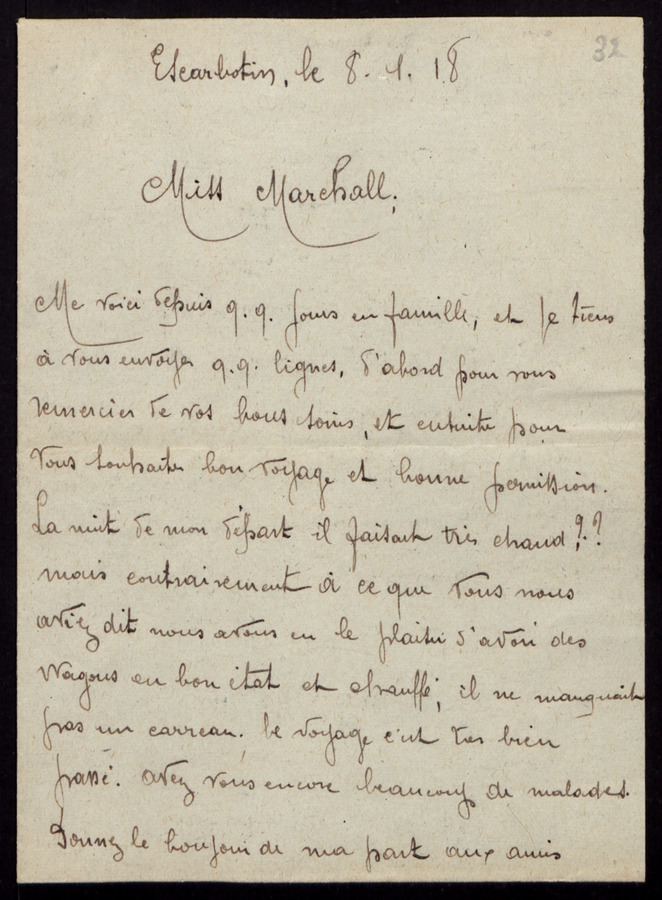 32
Escarbotin, le 8. 1. 18
Miss Marchall;
Me voici depuis q.q. jours en famille, et je tiens
à vous envoyer q.q. lignes, d'abord pour vous
remercier de vos bons soins, et ensuite pour
vous souhaiter bon voyage et bonne permission.
La nuit de mon départ il faisait très chaud,??
mais contrairement à ce que vous nous
aviez dit nous avons eu le plaisir d'avoir des
wagons en bon état et chauffé, il ne manquait
pas un carreau. le voyage c'est très bien
passé. avez vous encore beaucoup de malades.
Donnez le bonjour de ma part aux amis